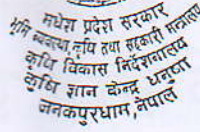 मधेश प्रदेश सरकार
भूमि व्यवस्था, कृषि तथा सहकारी मन्त्रालय
कृषि विकास निर्देशनालय
कृषि ज्ञान केन्द्र धनुषा
जनकपुरधाम, नेपाल